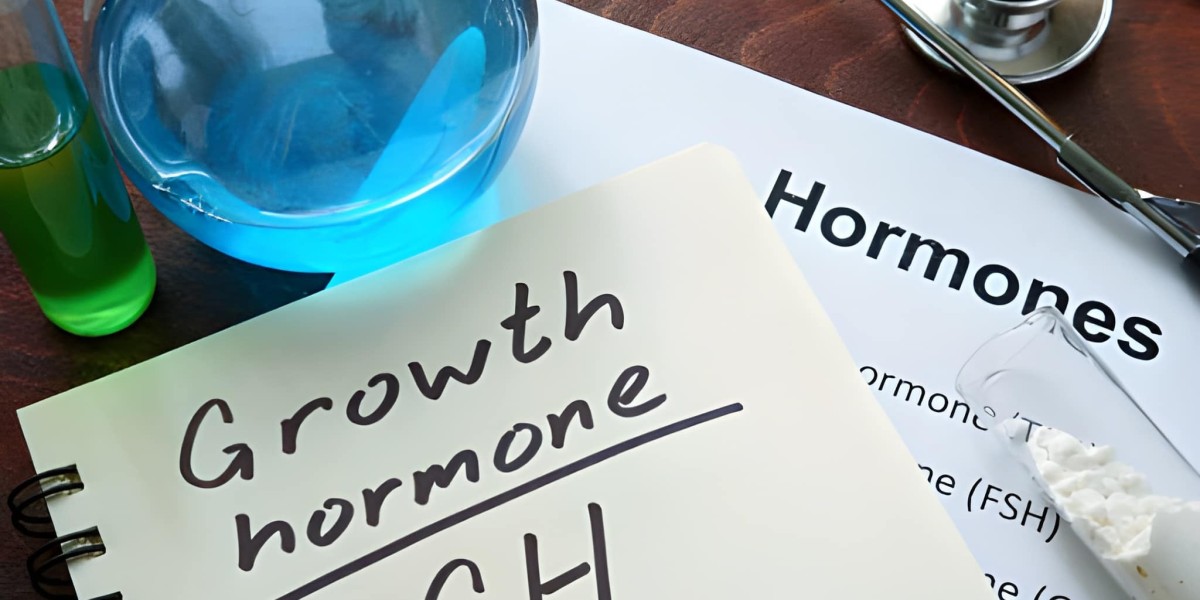 Growth
hormone
GH
Hormones
ormone
ne (FSH)